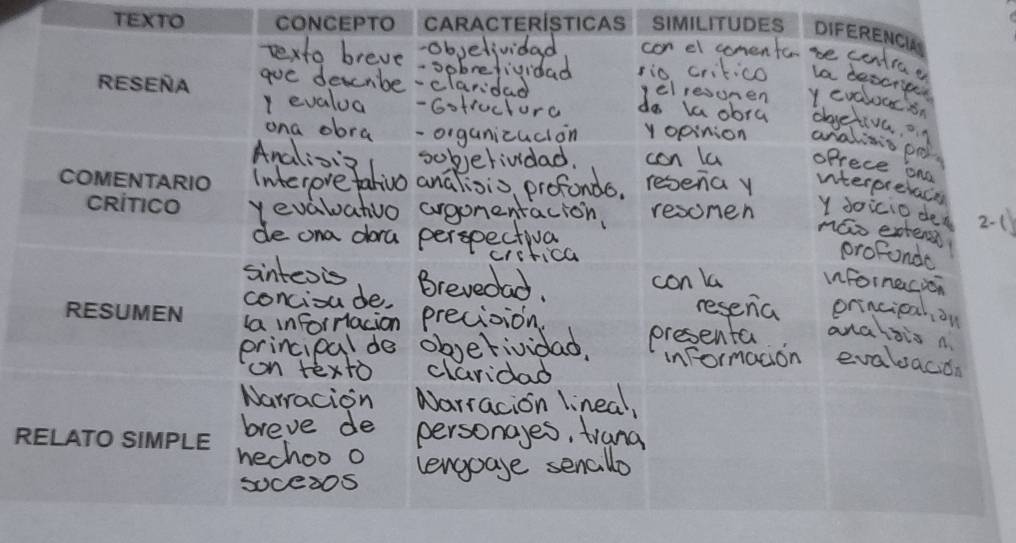 TEXTO CONCEPTO CARACTERÍSTICAS SIMILITUDES DIFERENCIAS
RESEÑA
texto breve
que describe
y evalua
una obra
-Objetividad
-sobretividad
-claridad
-Estructura
-organización
con el comenta
rio critico
y el resumen
de la obra
y opinion
se centra en
la descripción
y evaluación
objetiva, sin
analisis prof
COMENTARIO
CRÍTICO
Analisis
interpretativo
y evaluativo
de una obra
subjetividad.
análisis profundo.
argumentación,
perspectiva
crítica
con la
reseña y
resumen
ofrece una
interpretación
y juicio de
más extenso y
profundo
2-
RESUMEN
sintesis
concisa de
la información
principal de
un texto
Brevedad,
precisión,
objetividad,
claridad
con la
reseña
presenta
información
información
principal, sin
analisis ni
evaluación
RELATO SIMPLE
Narración
breve de
hechos o
sucesos
Narración lineal,
personajes, trama,
lenguaje sencillo